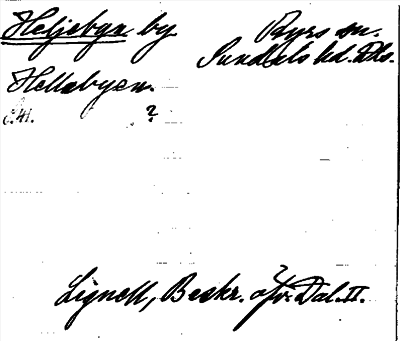 Heljebyn by
Ryrs sn.
Sundals hd. Dls.
Hellebyen.
s. 41. ?
Lignell, Beskr. öfv. Dal. II.